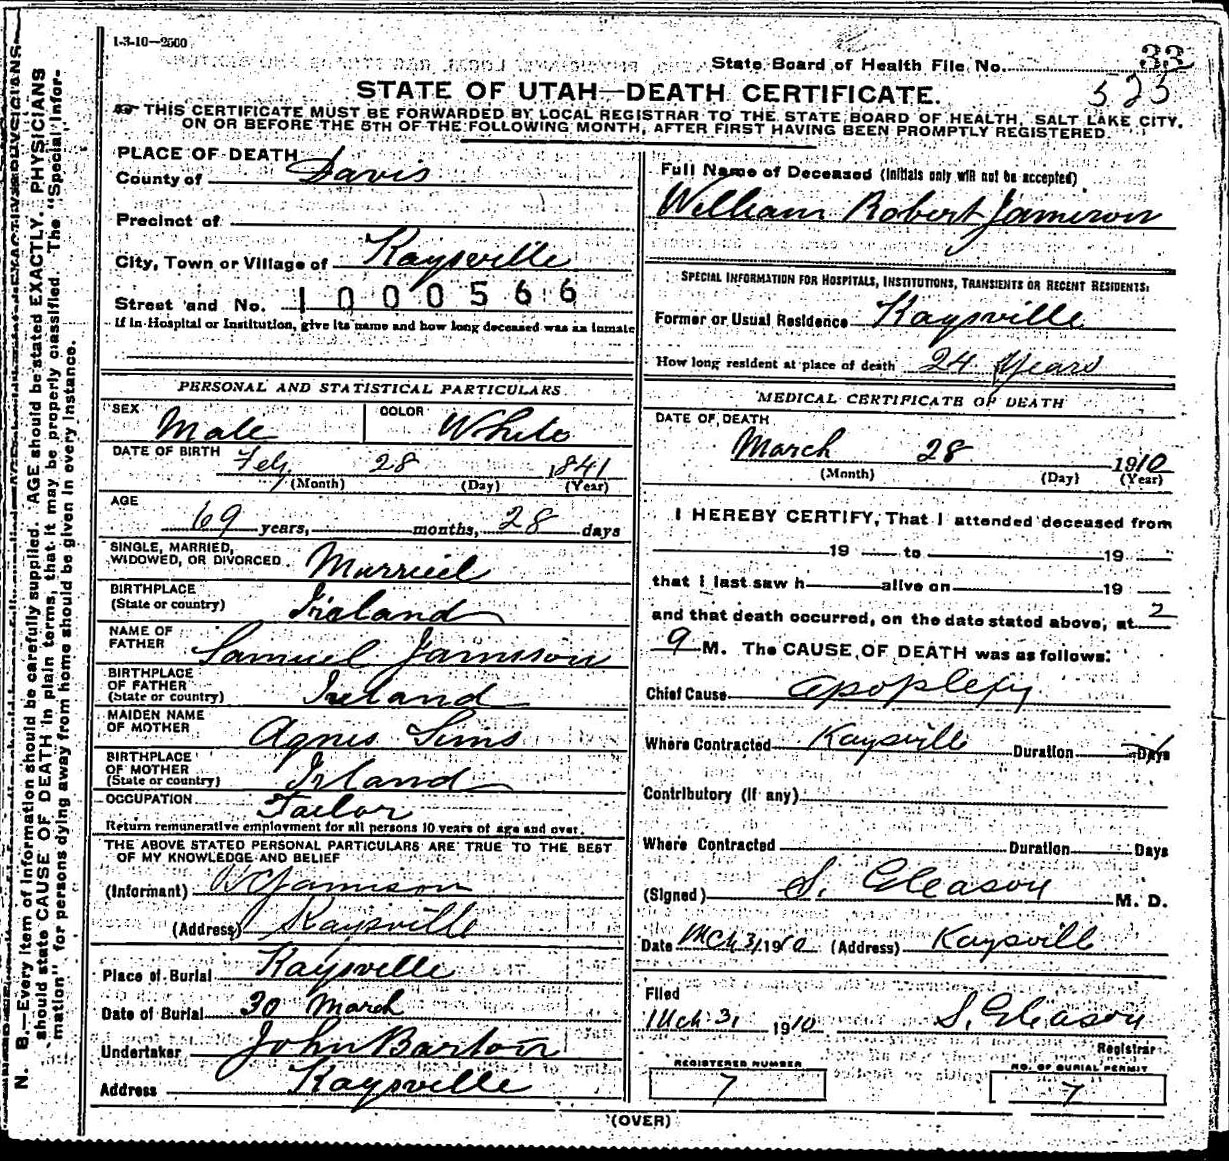 1-3-10—2500
State Board of Health File No. 33
525
STATE OF UTAH—DEATH CERTIFICATE.
THIS CERTIFICATE MUST BE FORWARDED BY LOCAL REGISTRAR TO THE STATE BOARD OF HEALTH, SALT LAKE CITY,
ON OR BEFORE THE 5TH OF THE FOLLOWING MONTH, AFTER FIRST HAVING BEEN PROMPTLY REGISTERED.
PLACE OF DEATH
County of Davis
Precinct of
City, Town or Village of Kaysville
Street and No. 1000566
If in Hospital or Institution, give its name and how long deceased was an inmate
PERSONAL AND STATISTICAL PARTICULARS
SEX Male COLOR White
DATE OF BIRTH Feby 28 1841
(Month) (Day) (Year)
AGE
69 years, months, 28 days
SINGLE, MARRIED,
WIDOWED, OR DIVORCED Married
BIRTHPLACE
(State or country) Irland
NAME OF
FATHER Samuel Jamison
BIRTHPLACE
OF FATHER
(State or country) Ireland
MAIDEN NAME
OF MOTHER Agnes Sims
BIRTHPLACE
OF MOTHER
(State or country) Irland
OCCUPATION Tailor
Return remunerative employment for all persons 10 years of age and over.
THE ABOVE STATED PERSONAL PARTICULARS ARE TRUE TO THE BEST
OF MY KNOWLEDGE AND BELIEF
(Informant) Jamison
(Address) Kaysville
Place of Burial Kaysville
Date of Burial 30 March
Undertaker John Barton
Address Kaysville
Full Name of Deceased (Initials only will not be accepted)
William Robert Jameson
SPECIAL INFORMATION FOR HOSPITALS, INSTITUTIONS, TRANSIENTS OR RECENT RESIDENTS:
Former or Usual Residence Kaysville
How long resident at place of death 24 Years
MEDICAL CERTIFICATE OF DEATH
DATE OF DEATH
March 28 1910
(Month) (Day) (Year)
I HEREBY CERTIFY, That I attended deceased from
19 to 19
that I last saw h alive on 19
and that death occurred, on the date stated above, at 2
9 M. The CAUSE OF DEATH was as follows:
Chief Cause Apoplexy
Where Contracted Kaysville Duration Days
Contributory (if any)
Where Contracted Duration Days
(Signed) S. Gleason M. D.
Date Mch 31 1910 (Address) Kaysvill
Filed
Mch 31 1910 S. Gleason
Registrar
REGISTERED NUMBER
7
NO. OF BURIAL PERMIT
7
(OVER)
N. B.—Every item of information should be carefully supplied. AGE should be stated EXACTLY. PHYSICIANS
should state CAUSE OF DEATH in plain terms, that it may be properly classified. The "Special Infor-
mation" for persons dying away from home should be given in every instance.